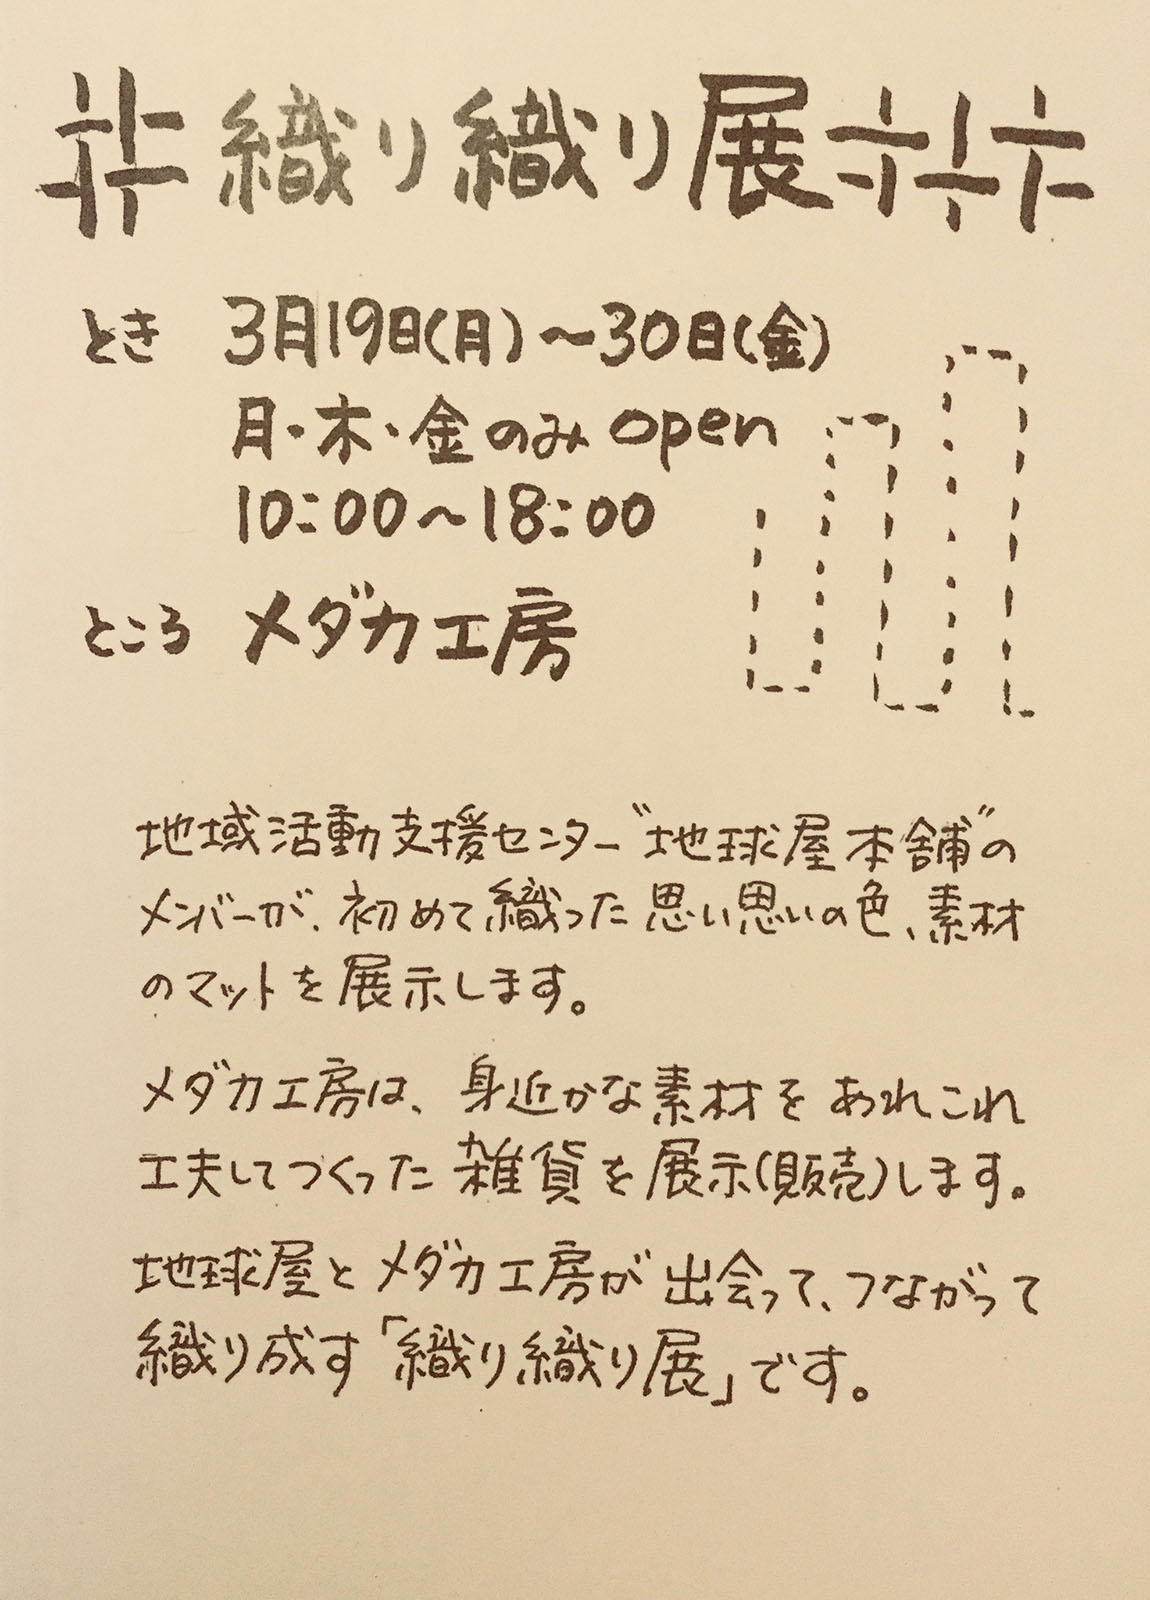 織り織り展
とき 3月19日(月)〜30日(金)
月・木・金のみopen
10:00〜18:00
ところ メダカ工房
地域活動支援センター“地球屋本舗”の
メンバーが、初めて織った思い思いの色、素材
のマットを展示します。
メダカ工房は、身近かな素材をあれこれ
工夫してつくった雑貨を展示(販売)します。
地球屋とメダカ工房が出会って、つながって
織り成す「織り織り展」です。